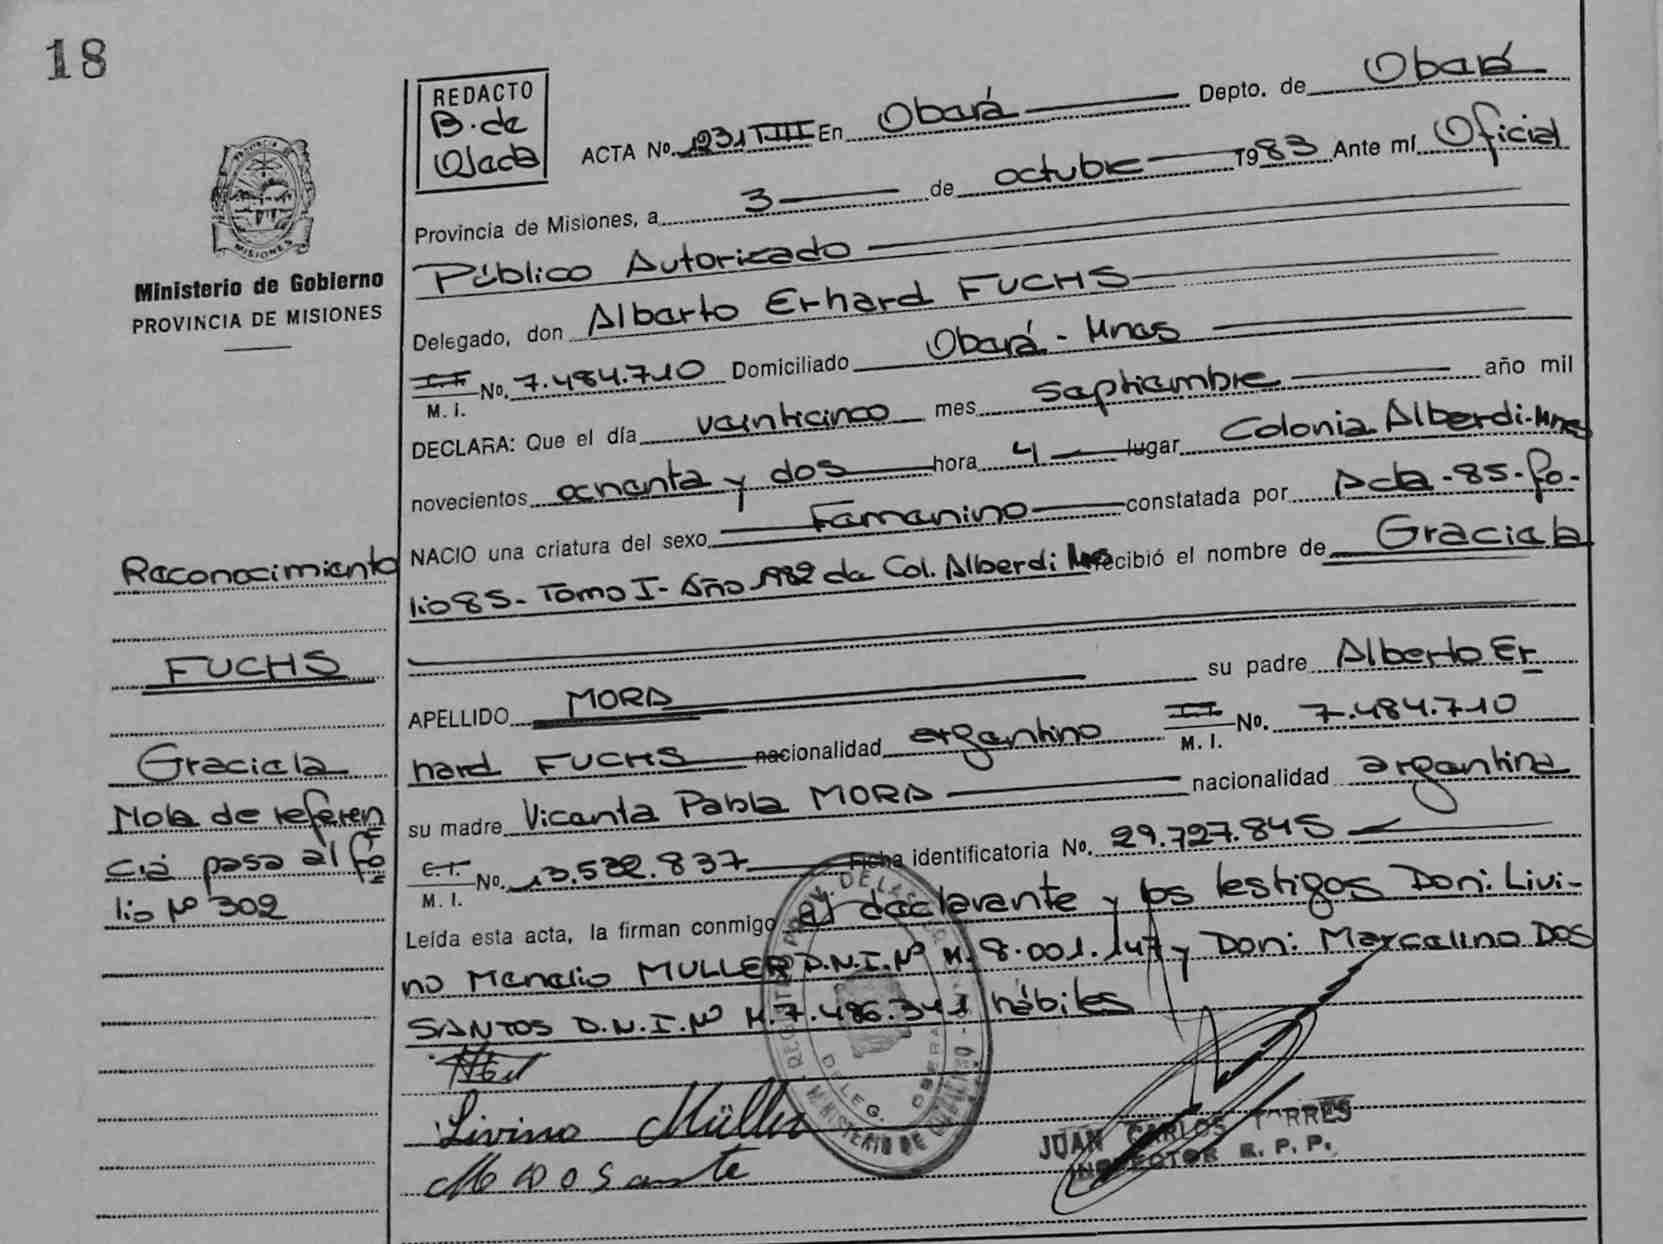 18
REDACTO
B. de
Ojeda
ACTA No. 1231 T.III En Oberá Depto. de Oberá
Provincia de Misiones, a 3 de octubre 1983 Ante mí Oficial
Público Autorizado
MISIONES
Ministerio de Gobierno
PROVINCIA DE MISIONES
Delegado, don Alberto Erhard FUCHS
M. I. No. 7.484.710 Domiciliado Oberá - Mnes
DECLARA: Que el día veinticinco mes septiembre año mil
novecientos ochenta y dos hora 4 lugar Colonia Alberdi-Mnes
NACIO una criatura del sexo Femenino constatada por Acta-85-fo-
lio 85- Tomo I- Año 1982 de Col. Alberdi Mnes recibió el nombre de Graciela
APELLIDO MORA su padre Alberto Er
hard FUCHS nacionalidad argentino M. I. No. 7.484.710
su madre Vicenta Pabla MORA nacionalidad argentina
C.I. M. I. No. 13.522.837 Ficha identificatoria No. 29.727.845
Leída esta acta, la firman conmigo el declarante y los testigos Don: Livi-
no Menelio MULLER D.N.I. Nº M. 8.001.147 y Don: Marcelino DOS
SANTOS D.N.I. Nº M. 7.486.341 hábiles
Reconocimiento
FUCHS
Graciela
Nota de referen
cia pasa al fo
lio Nº 302
Livino Müller
DELEG. OBERA
MINISTERIO DE GOBIERNO
JUAN CARLOS TORRES
INSPECTOR R. P. P.